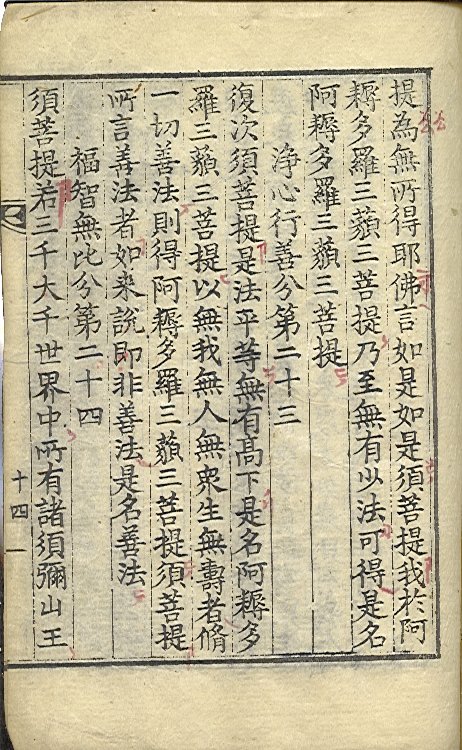 提為無所得耶佛言如是如是須菩提我於阿
耨多羅三藐三菩提乃至無有少法可得是名
阿耨多羅三藐三菩提
淨心行善分第二十三
復次須菩提是法平等無有高下是名阿耨多
羅三藐三菩提以無我無人無衆生無壽者脩
一切善法則得阿耨多羅三藐三菩提須菩提
所言善法者如来說即非善法是名善法
福智無比分第二十四
須菩提若三千大千世界中所有諸須彌山王
十四